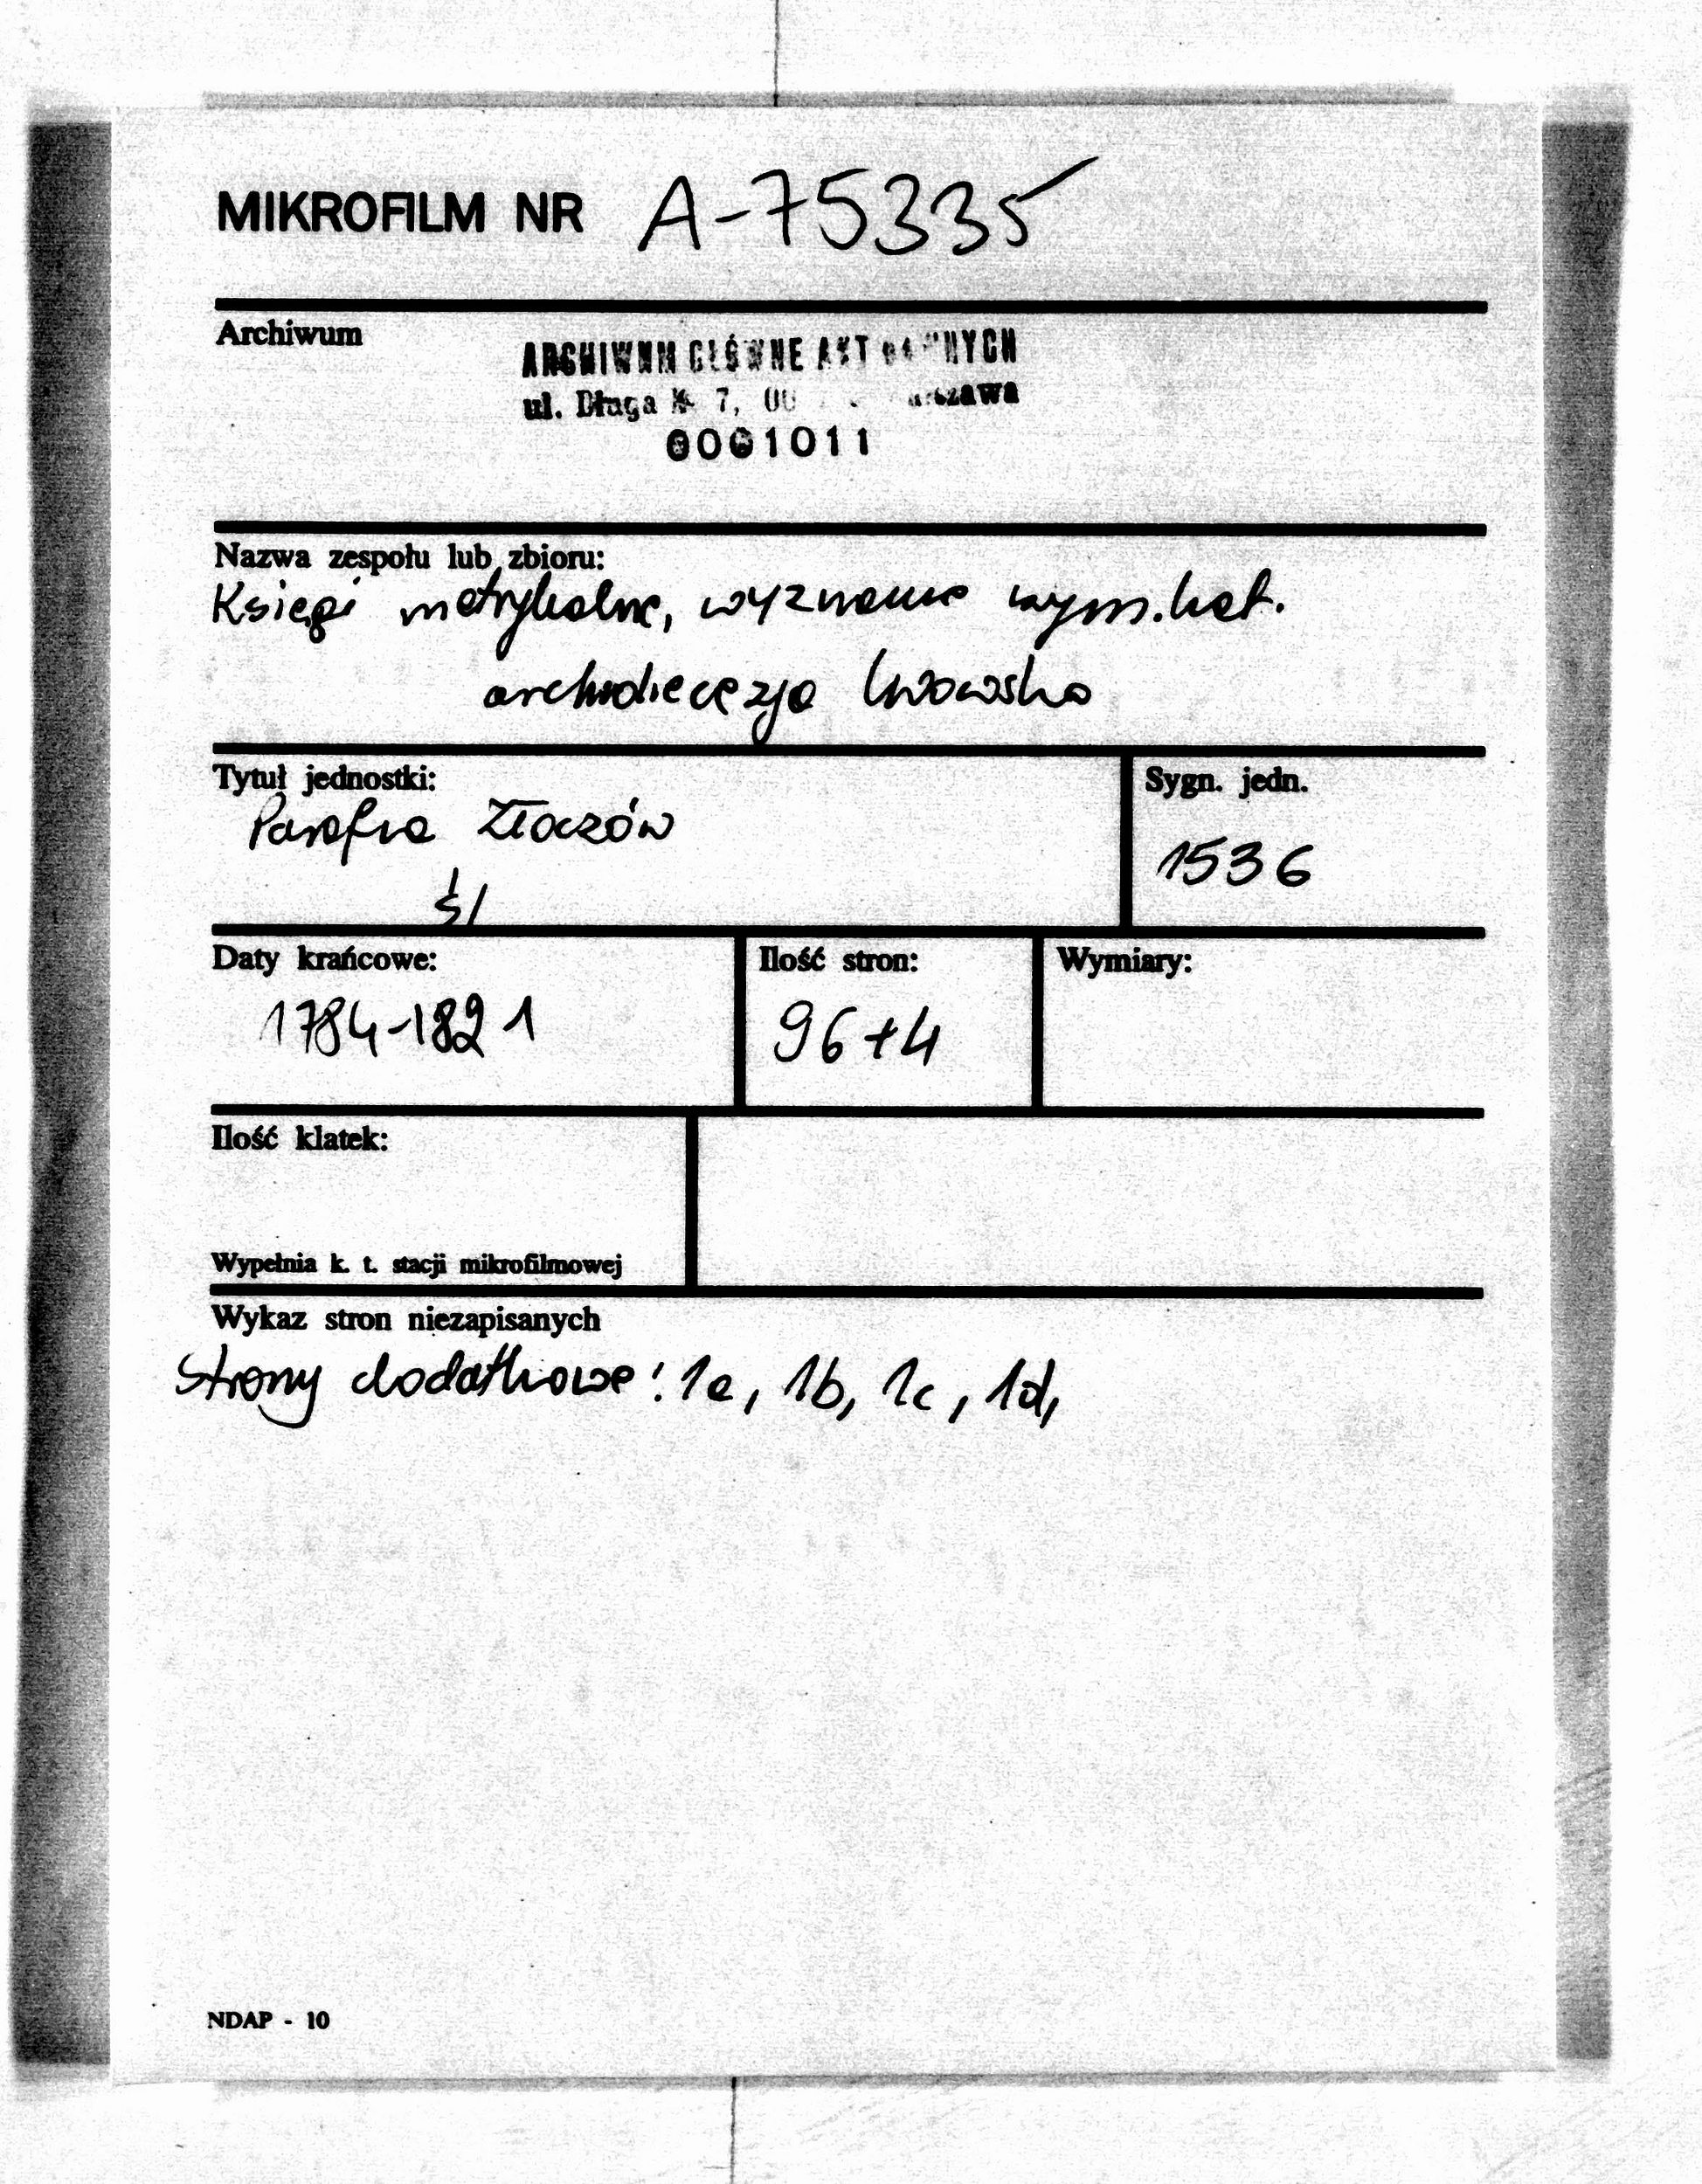 MIKROFILM NR A-75335
Archiwum
ARCHIWUM GŁÓWNE AKT
ul. Długa № 7,
0001011
Nazwa zespołu lub zbioru:
Księgi metrykalne, wyznanie rzym.kat.
archidiecezja lwowska
Tytuł jednostki:
Parafia Złoczów
Sygn. jedn.
1536
śl
Daty krańcowe:
Ilość stron:
Wymiary:
1784-1821
96+4
Ilość klatek:
Wypełnia k. t. stacji mikrofilmowej
Wykaz stron niezapisanych
Strony dodatkowe: 1a, 1b, 1c, 1d,
NDAP - 10